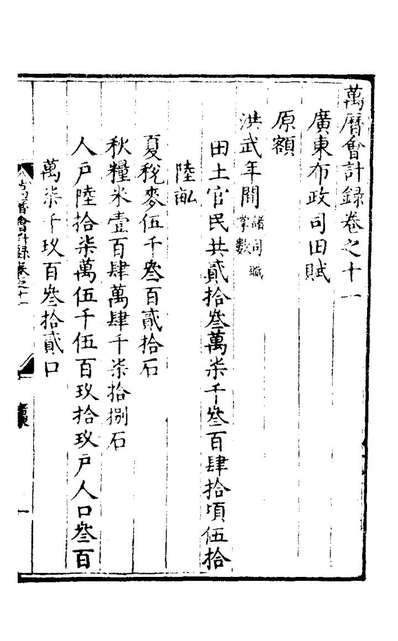 萬曆會計録卷之十一
廣東布政司田賦
原額
洪武年間諸司職掌數
田土官民共貳拾叁萬柒千叁百肆拾頃伍拾
陸畝
夏稅麥伍千叁百貳拾石
秋糧米壹百肆萬肆千柒拾捌石
人戶陸拾柒萬伍千伍百玖拾玖戶人口叁百
萬柒千玖百叁拾貳口
萬曆會計録卷之十一
廣東
一